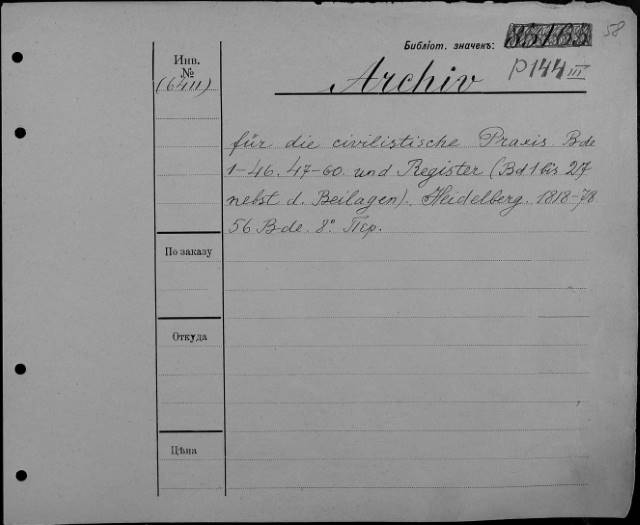 58
Библіот. значекъ:
P 144 III
Инв.
№
(6411)
Archiv
für die civilistische Praxis Bde
1-46. 47-60. und Register (Bd 1 bis 27
nebst d. Beilagen). Heidelberg. 1818-78
56 Bde. 8° Пер.
По заказу
Откуда
Цѣна